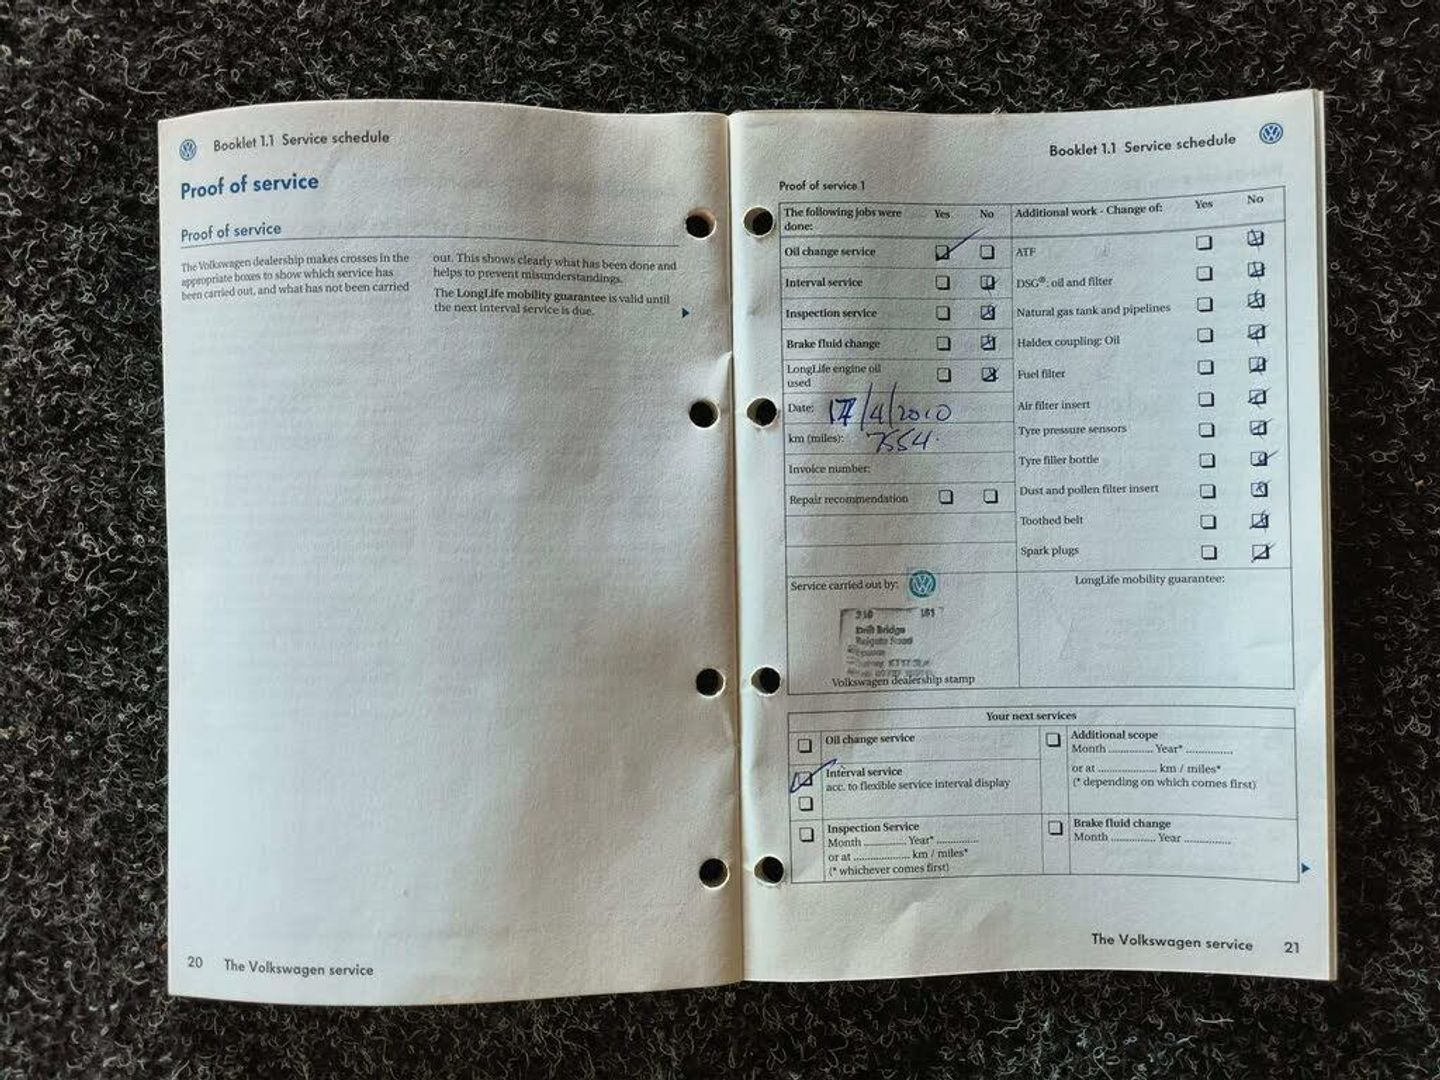 Booklet 1.1 Service schedule
Proof of service
Proof of service
The Volkswagen dealership makes crosses in the
appropriate boxes to show which service has
been carried out, and what has not been carried
out. This shows clearly what has been done and
helps to prevent misunderstandings.
The LongLife mobility guarantee is valid until
the next interval service is due.
20 The Volkswagen service
Booklet 1.1 Service schedule
Proof of service 1
The following jobs were
done:
Yes No
Oil change service
Interval service
Inspection service
Brake fluid change
LongLife engine oil
used
Date: 17/4/2010
km (miles): 7554.
Invoice number:
Repair recommendation
Additional work - Change of: Yes No
ATF
DSG®: oil and filter
Natural gas tank and pipelines
Haldex coupling: Oil
Fuel filter
Air filter insert
Tyre pressure sensors
Tyre filler bottle
Dust and pollen filter insert
Toothed belt
Spark plugs
Service carried out by:
Drift Bridge
Reigate Road
Epsom
Volkswagen dealership stamp
LongLife mobility guarantee:
Your next services
Oil change service
Interval service
acc. to flexible service interval display
Inspection Service
Month ............ Year* ............
or at ................ km / miles*
(* whichever comes first)
Additional scope
Month ............ Year* ............
or at ................ km / miles*
(* depending on which comes first)
Brake fluid change
Month ............ Year ............
The Volkswagen service 21